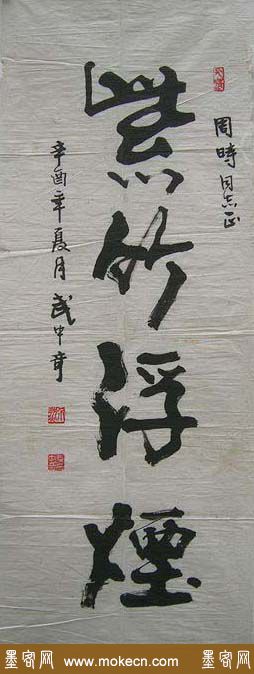 周時同志正
紫竹浮煙
辛酉年夏月武中奇
墨客网 www.mokecn.com 墨客网